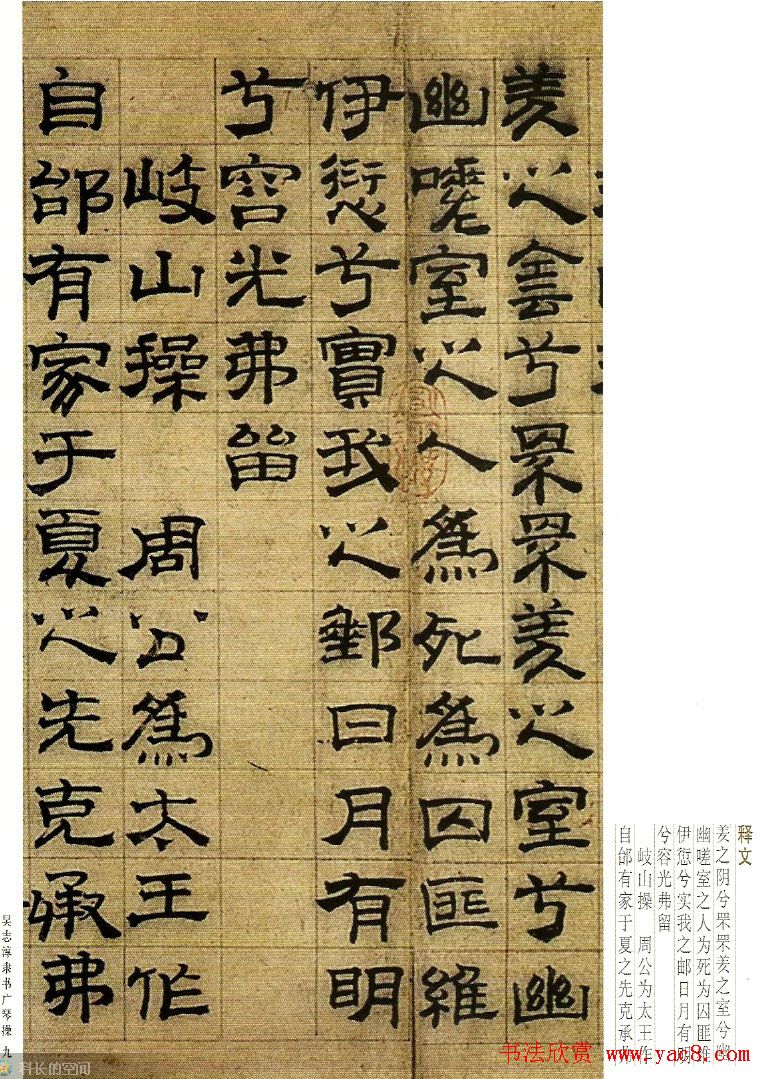 羑之侌兮罙罙羑之室兮幽
幽嗟室之人為死為囚匪維
伊愆兮實我之郵日月有明
兮容光弗留
岐山操 周公為太王作
自邰有家于夏之先克承弗
释文
羑之阴兮罙罙羑之室兮幽
幽嗟室之人为死为囚匪维
伊愆兮实我之邮日月有明
兮容光弗留
岐山操 周公为太王作
自邰有家于夏之先克承弗
吴志淳隶书广琴操 九
科长的空间
书法欣赏 www.yac8.com